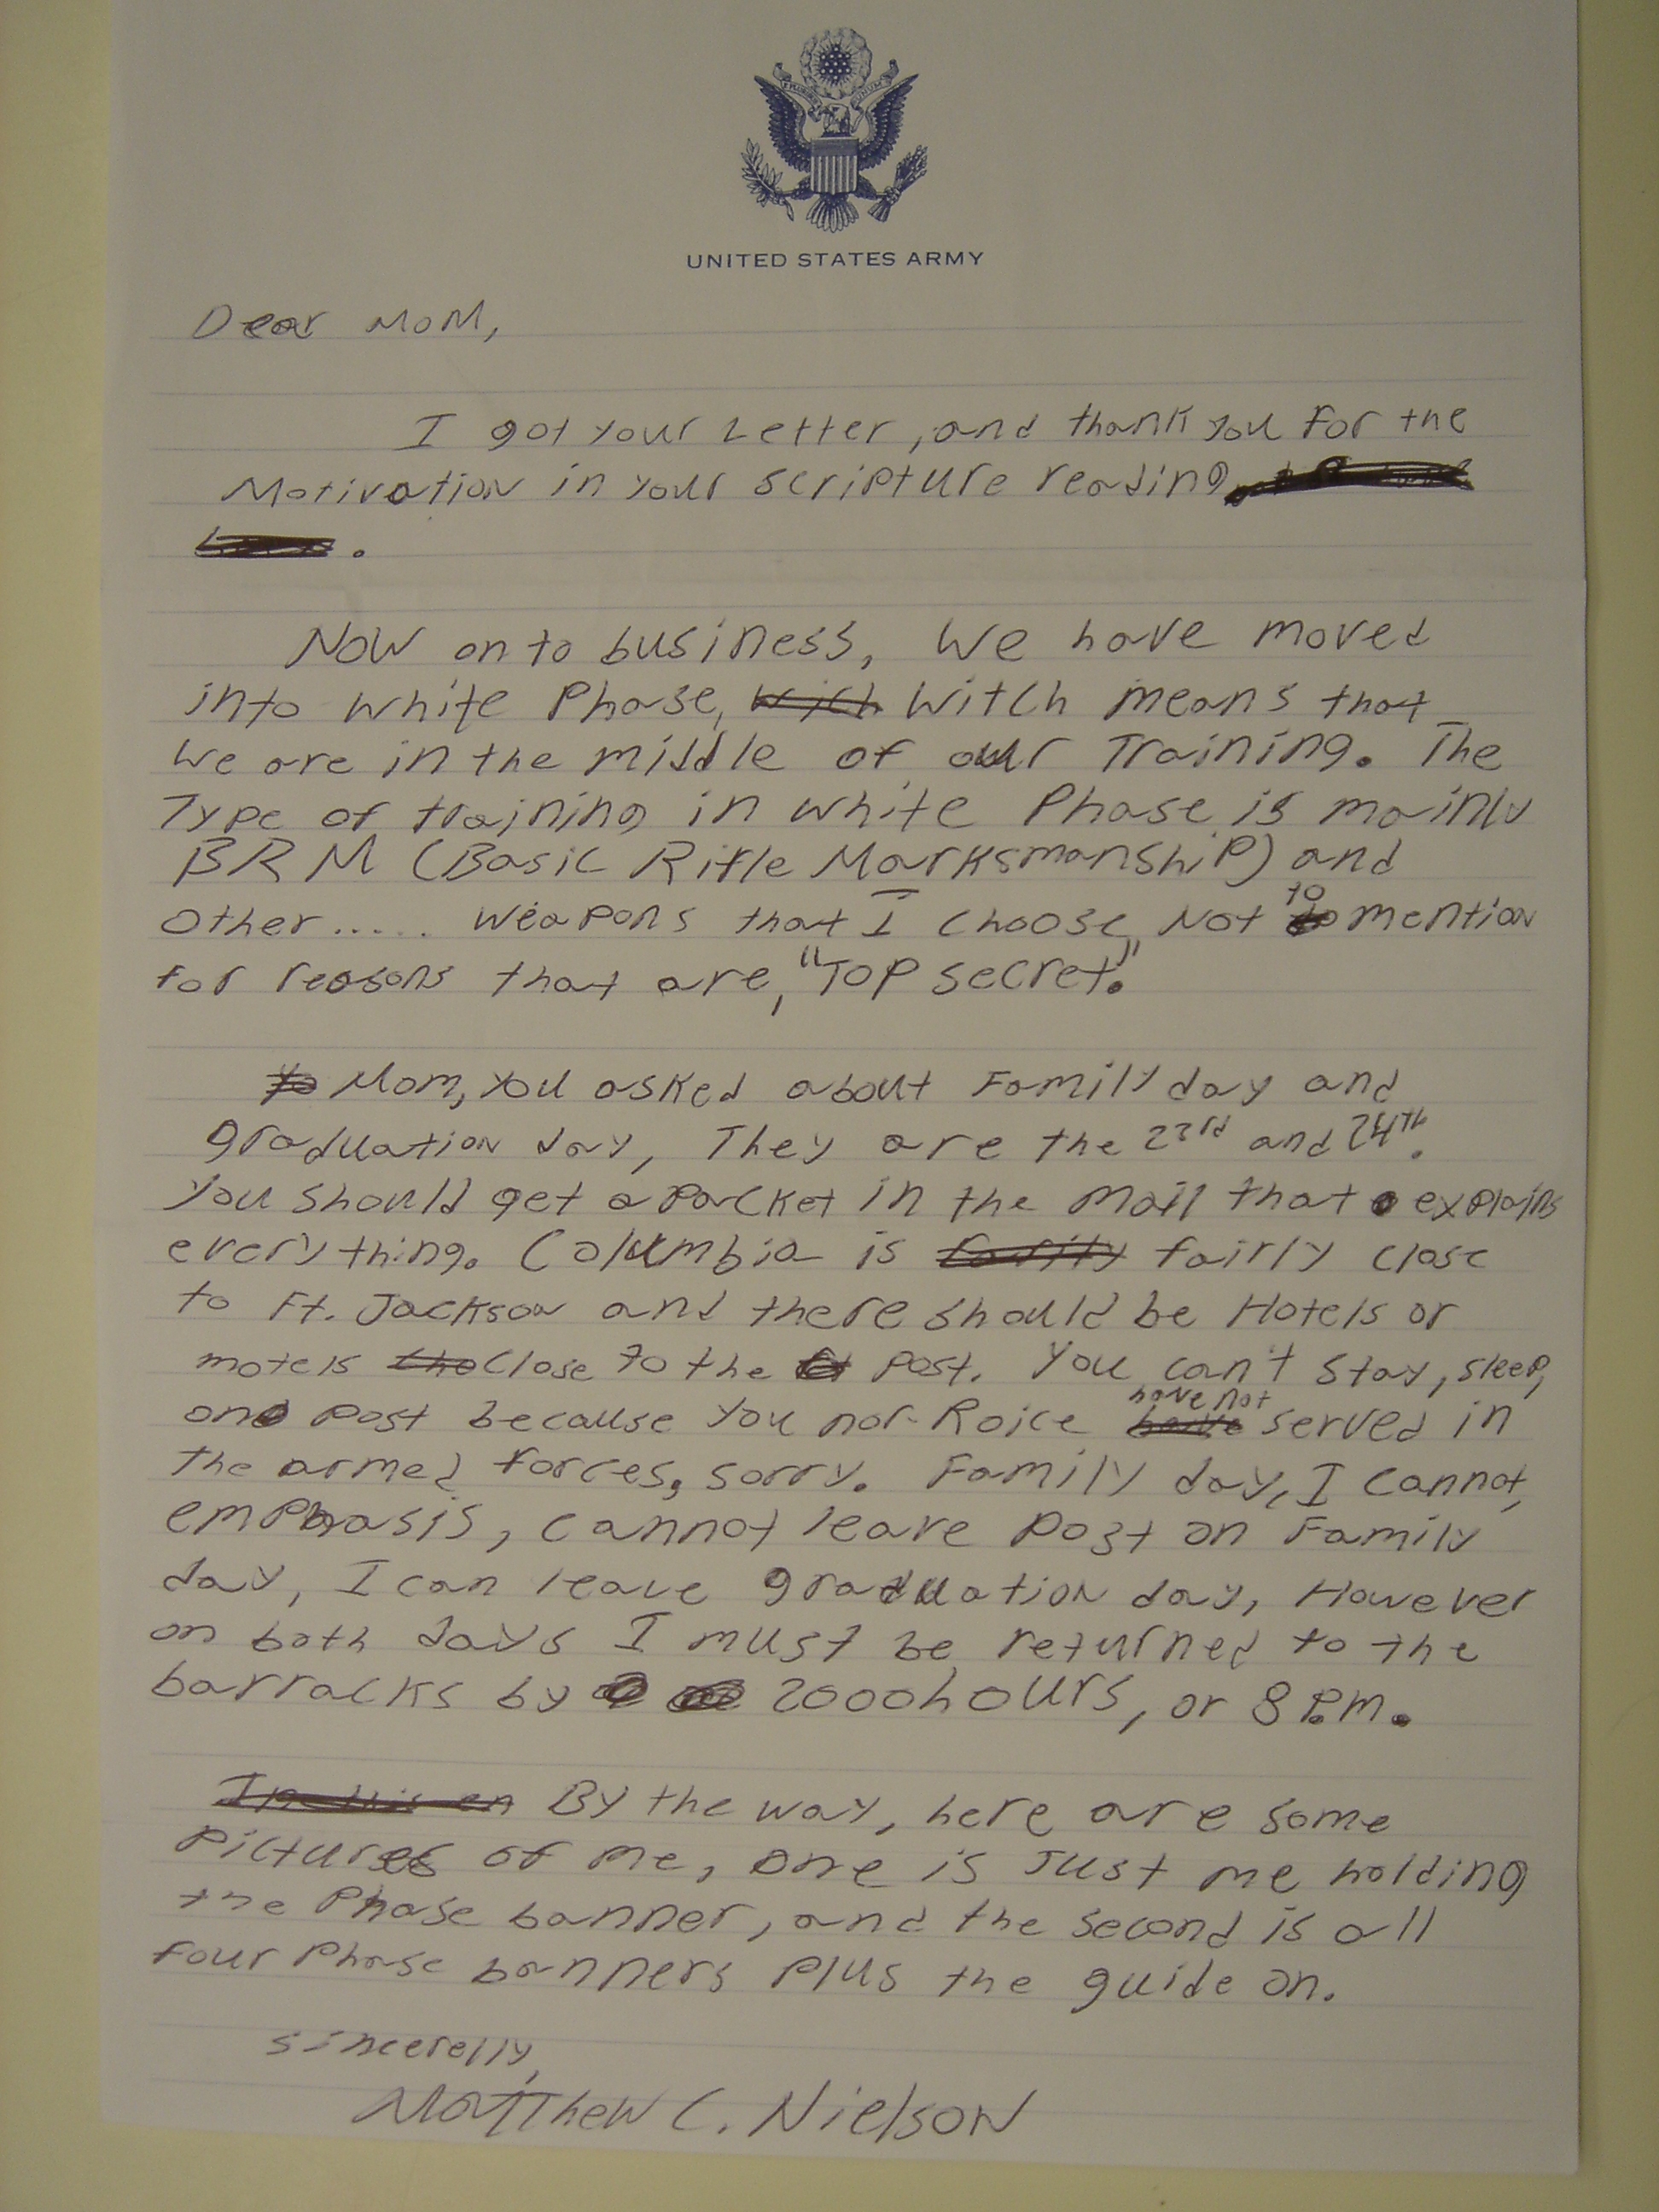 E PLURIBUS UNUM
UNITED STATES ARMY
Dear Mom,
I got your Letter, and thank you for the
Motivation in your scripture reading
.
Now on to business, We have moved
into white Phase, wich witch means that
we are in the middle of our Training. The
Type of training in white Phase is mainly
BRM (Basic Rifle Marksmanship) and
other..... weapons that I choose Not to mention
for reasons that are, "Top secret."
yo Mom, you asked about Family day and
graduation day, They are the 23rd and 24th.
You should get a packet in the mail that explains
everything. Columbia is fairly close
to Ft. Jackson and there should be Hotels or
motels close to the post. You can't stay, sleep,
on post because you nor Roice have not served in
the armed forces, sorry. Family day, I cannot,
emphasis, cannot leave post on Family
day, I can leave graduation day, However
on both days I must be returned to the
barracks by 2000hours, or 8 P.m.
By the way, here are some
pictures of me, one is Just me holding
the Phase banner, and the second is all
four Phase banners plus the guide on.
sincerelly,
Matthew C. Nielson